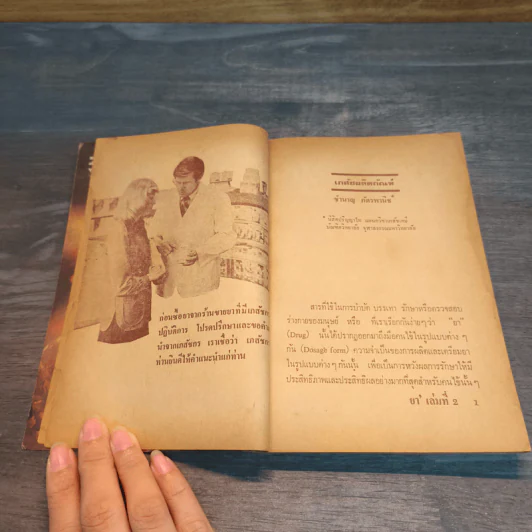 ก่อนซื้อยาจากร้านขายยาที่มีเภสัชกร
ปฏิบัติการ โปรดปรึกษาและขอคำ
นำจากเภสัชกร เราเชื่อว่า เภสัชกร
ท่านยินดีให้คำแนะนำแก่ท่าน
เภสัชผลิตภัณฑ์
ชำนาญ ภัตรพานิช*
* นิสิตปริญญาโท แผนกวิชาเภสัชเคมี
บัณฑิตวิทยาลัย จุฬาลงกรณมหาวิทยาลัย
สารที่ใช้ในการบำบัด บรรเทา รักษาหรือตรวจสอบ
ร่างกายของมนุษย์ หรือ ที่เราเรียกกันง่ายๆว่า "ยา"
(Drug) นั้นได้ปรากฏออกมาถึงมือคนใช้ในรูปแบบต่าง ๆ
กัน (Dosage form) ความจำเป็นของการผลิตและเตรียมยา
ในรูปแบบต่าง ๆ กันนั้น เพื่อเป็นการหวังผลการรักษาให้มี
ประสิทธิภาพและประสิทธิผลอย่างมากที่สุดสำหรับคนไข้นั้น ๆ
ยา' เล่มที่ 2 1